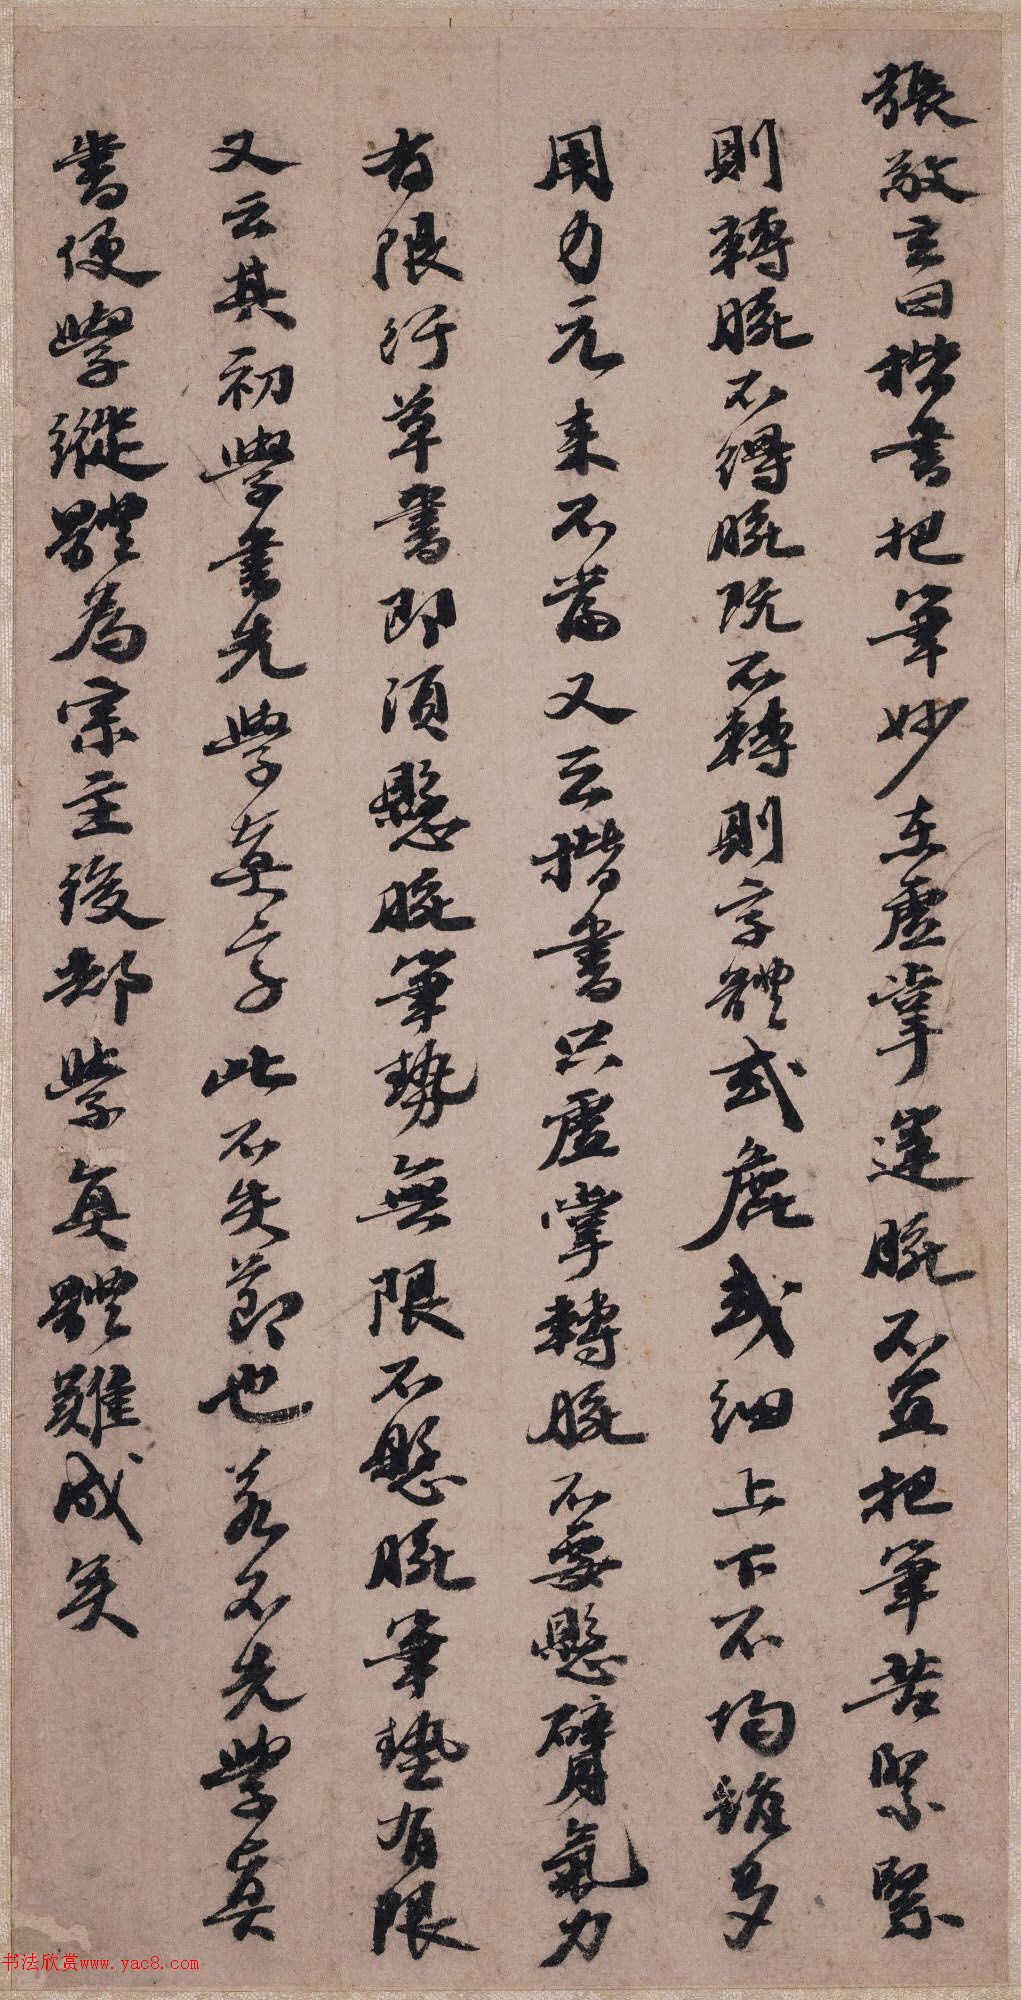 張敬玄曰楷書把筆妙在虛掌運腕不宜把筆苦緊緊
則轉腕不得腕既不轉則字體或麁或細上下不均雖多
用力元來不當又云楷書只虛掌轉腕不要懸臂氣力
有限行草書即須懸腕筆勢無限不懸腕筆勢有限
又云其初學書先學真字此不失節也若不先學真
書便學縱體為宗主後却學真體難成矣
书法欣赏www.yac8.com